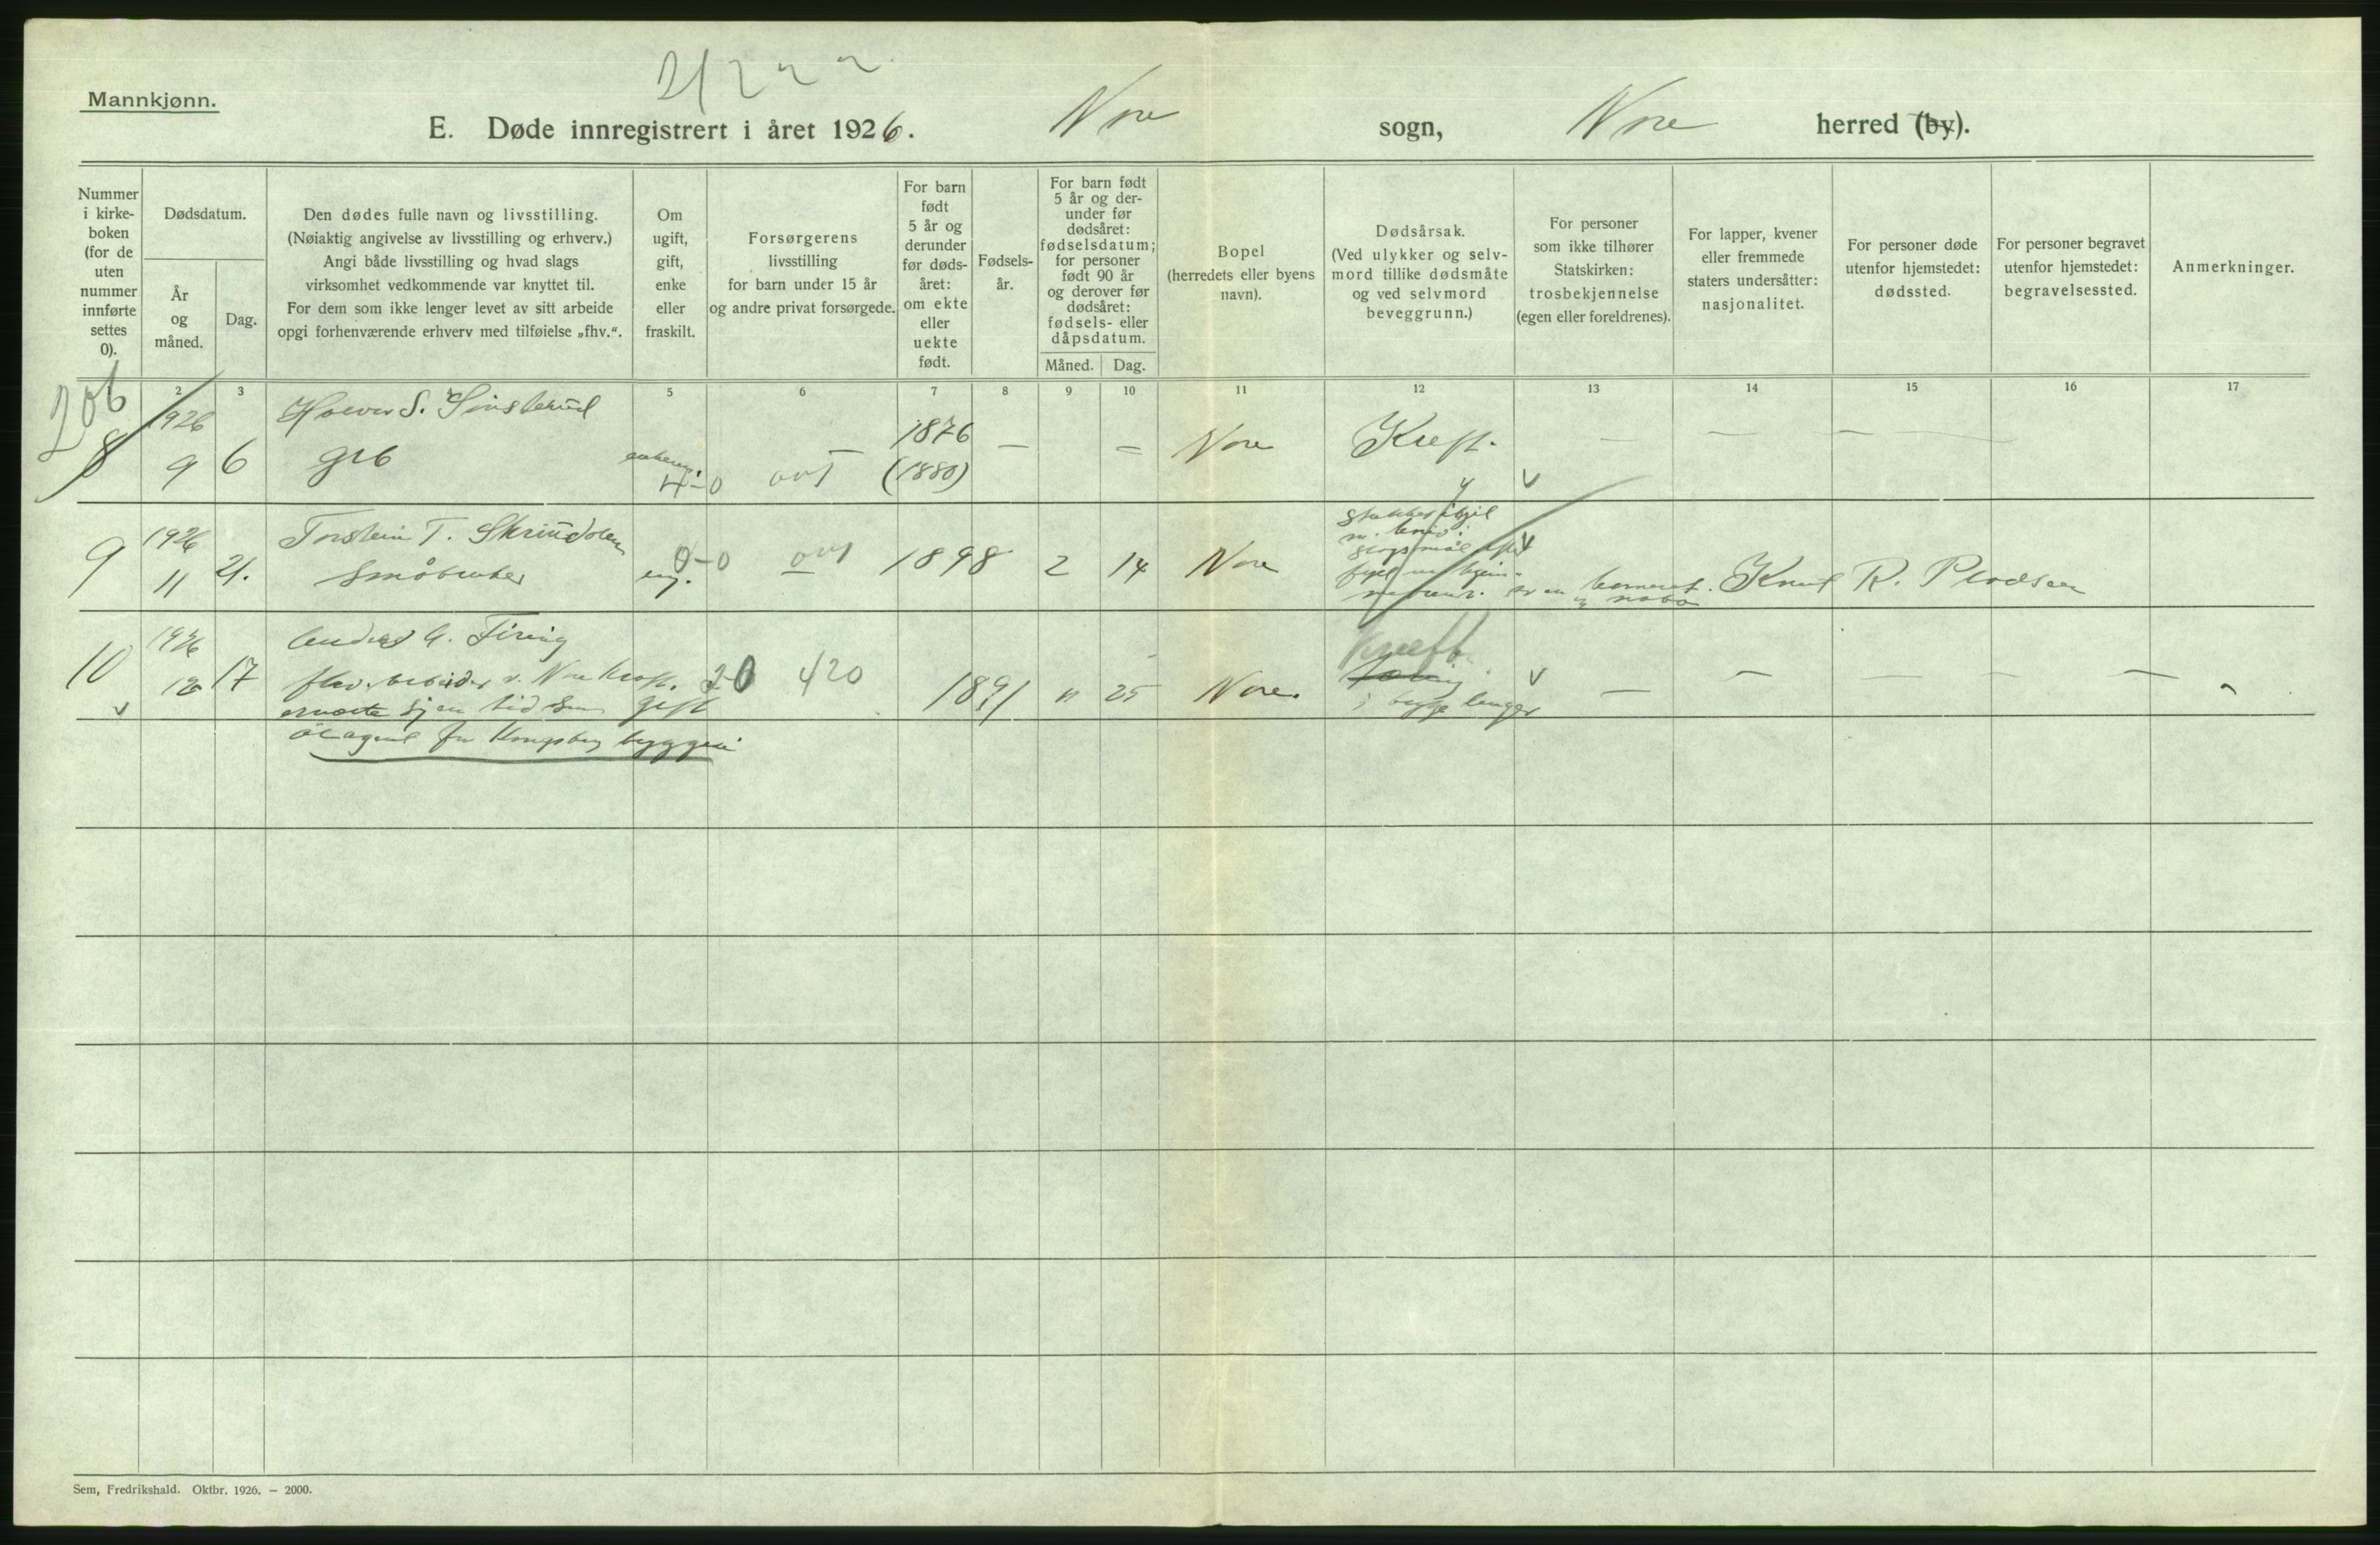 Mannkjønn.
E. Døde innregistrert i året 1926. Nore sogn, Nore herred (by).
Nummer i kirke-boken (for de uten nummer innførte settes 0).
Dødsdatum.
År og måned.
Dag.
Den dødes fulle navn og livsstilling.
(Nøiaktig angivelse av livsstilling og erhverv.)
Angi både livsstilling og hvad slags
virksomhet vedkommende var knyttet til.
For dem som ikke lenger levet av sitt arbeide
opgi forhenværende erhverv med tilføielse „fhv.“.
Om ugift, gift, enke eller fraskilt.
Forsørgerens
livsstilling
for barn under 15 år
og andre privat forsørgede.
For barn født 5 år og derunder før døds-året: om ekte eller uekte født.
Fødsels-år.
For barn født 5 år og der-under før dødsåret: fødselsdatum; for personer født 90 år og derover før dødsåret: fødsels- eller dåpsdatum.
Måned. Dag.
Bopel
(herredets eller byens
navn).
Dødsårsak.
(Ved ulykker og selv-
mord tillike dødsmåte
og ved selvmord
beveggrunn.)
For personer
som ikke tilhører
Statskirken:
trosbekjennelse
(egen eller foreldrenes).
For lapper, kvener
eller fremmede
staters undersåtter:
nasjonalitet.
For personer døde
utenfor hjemstedet:
dødssted.
For personer begravet
utenfor hjemstedet:
begravelsessted.
Anmerkninger.
2 3 5 6 7 8 9 10 11 12 13 14 15 16 17
206
8 1926 9 6 S. grb 4-0 1876 (1880) — Nore Kreft. — — —
9 1926 11 21. T. småbruker ug. 0-0 1898 2 14 Nore Knut R.
10 1926 12 17 Anders A. gift 20 420 1891 11 25 Nore. kreft — — — —
v. Nore
tid som
ølagent for Kongsberg bryggeri
Sem, Fredrikshald. Oktbr. 1926. — 2000.